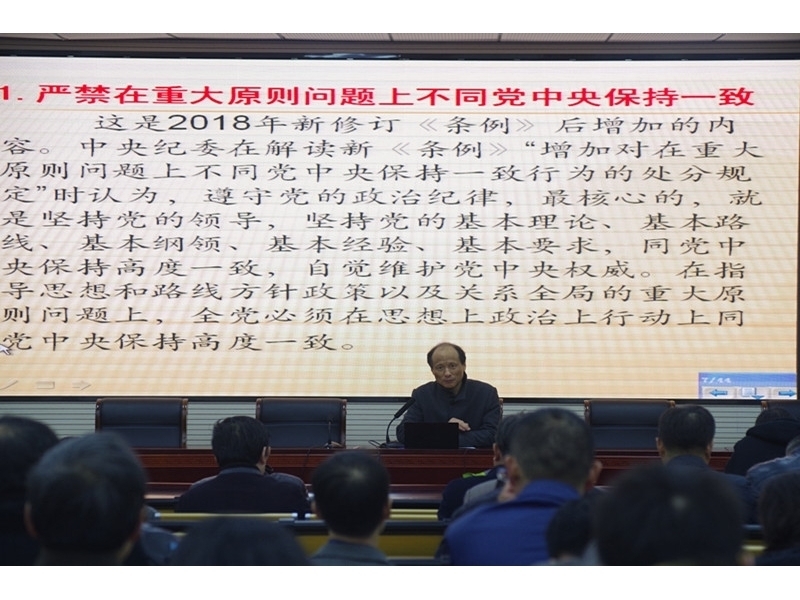 1. 严禁在重大原则问题上不同党中央保持一致
这是2018年新修订《条例》后增加的内
容。中央纪委在解读新《条例》“增加对在重大
原则问题上不同党中央保持一致行为的处分规
定”时认为，遵守党的政治纪律，最核心的，就
是坚持党的领导，坚持党的基本理论、基本路
线、基本纲领、基本经验、基本要求，同党中
央保持高度一致，自觉维护党中央权威。在指
导思想和路线方针政策以及关系全局的重大原
则问题上，全党必须在思想上政治上行动上同
党中央保持高度一致。
7/44